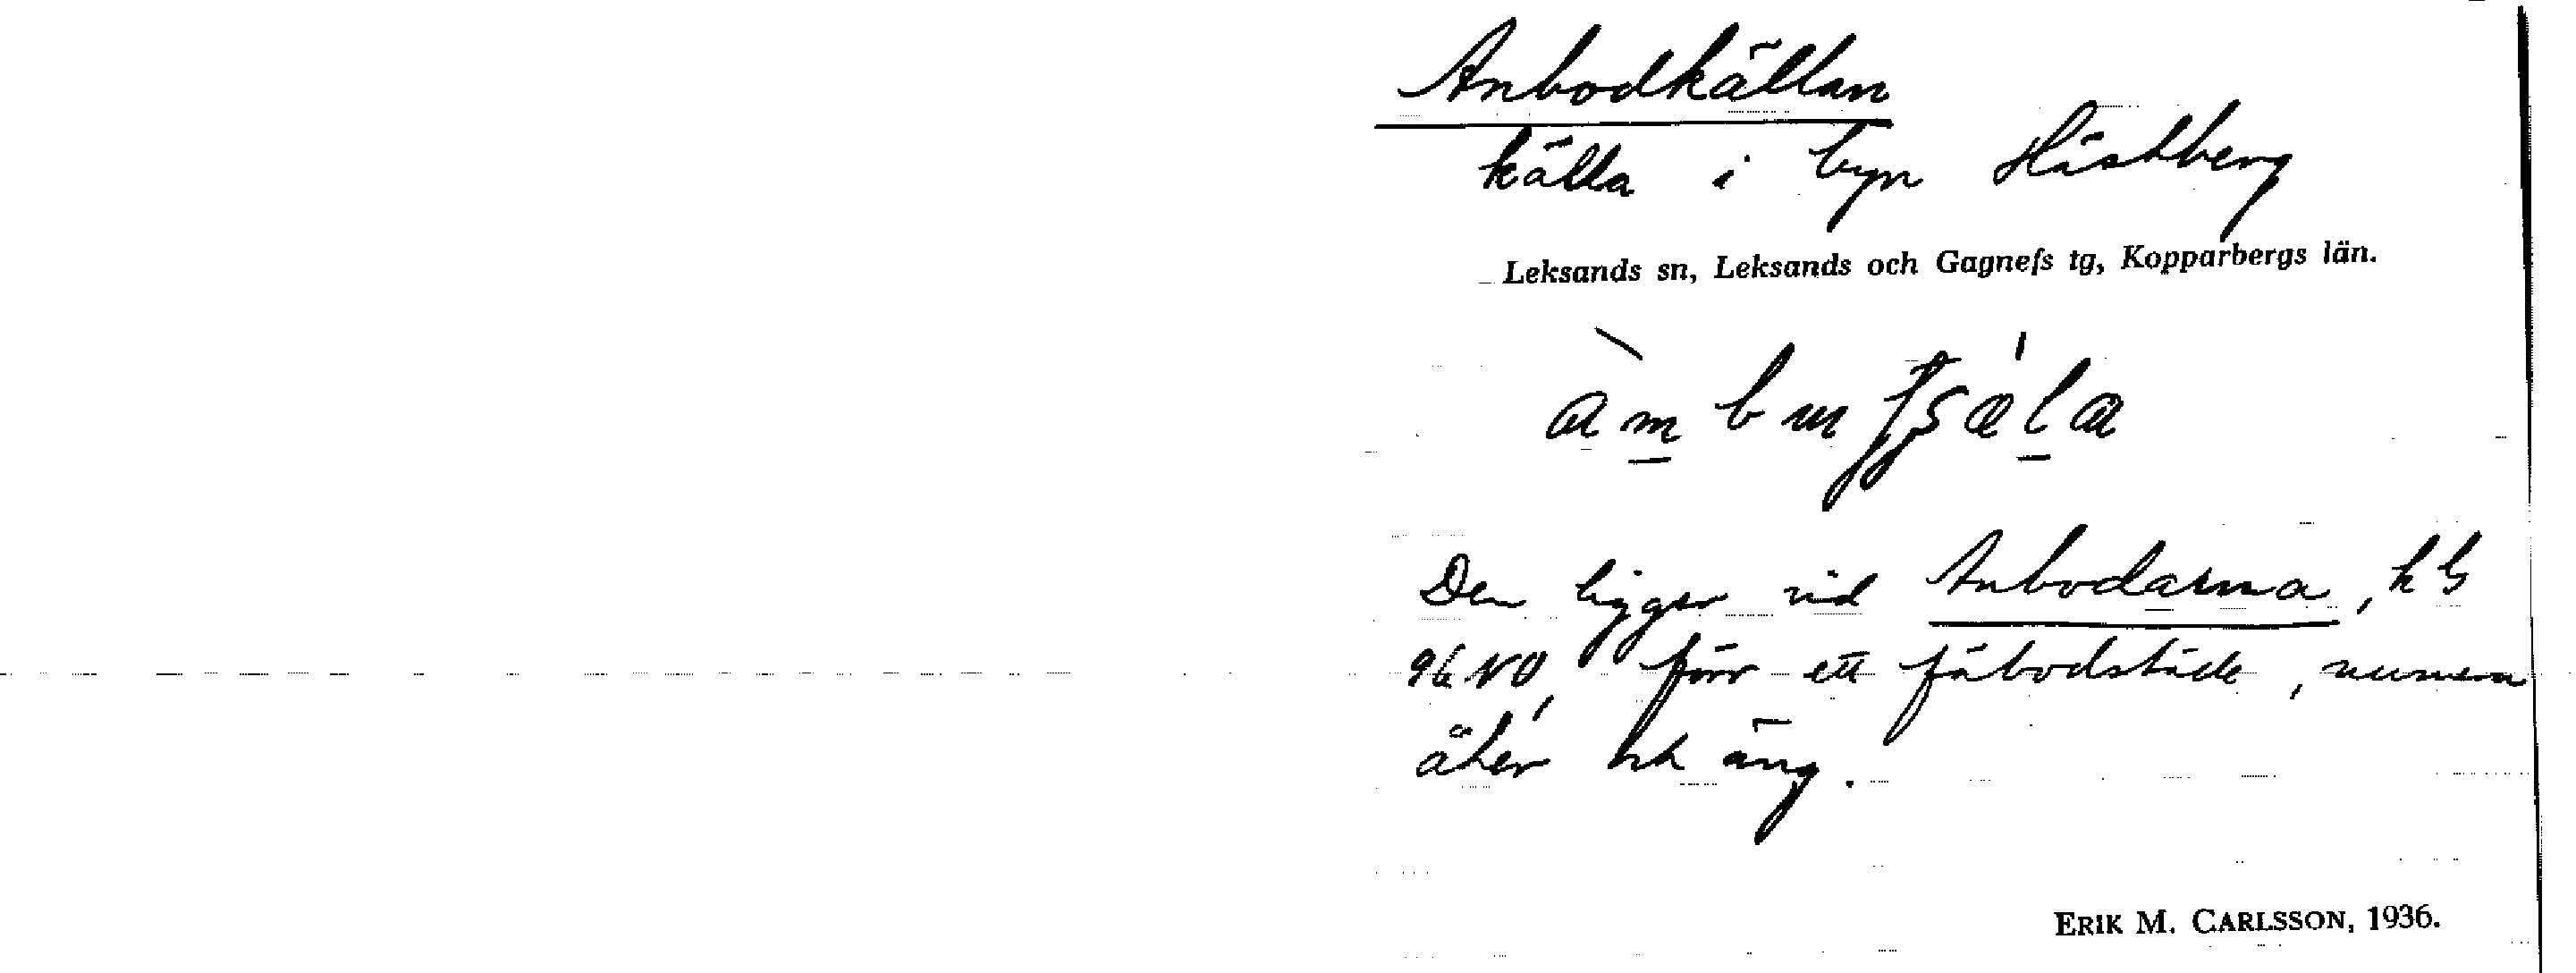 Anbodkällan
källa i byn Hästberg
Leksands sn, Leksands och Gagnefs tg, Kopparbergs län.
Den ligger vid Anbodarna, hb
96 NO, förr ett fäbodställe, numera
åker och äng.
ERIK M. CARLSSON, 1936.